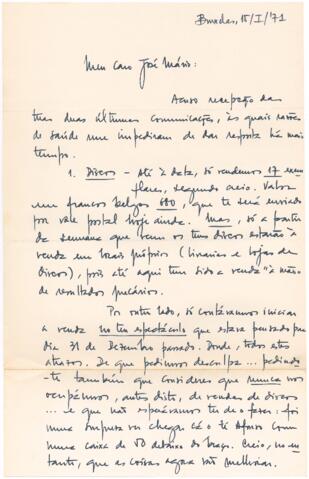 Bruxelas, 15/I/'71
Meu caro José Mário:
Acuso recepção das
tuas duas últimas comunicações, às quais razões
de saúde me impediram de dar resposta há mais
tempo.
1. Discos - Até à data, só vendemos 17 exem
plares, segundo creio. Valor
em francos belgas 680, que te será enviado
por vale postal hoje ainda. Mas, só a partir
da semana que vem os teus discos estarão à
venda em locais próprios (livrarias e lojas de
discos), pois até aqui tem sido a venda "à mão"
de resultados precários.
Por outro lado, só contávamos iniciar
a venda no teu espectáculo que estava pensado pro
dia 31 de Dezembro passado. Donde, todos estes
atrasos. De que pedimos desculpa... pedindo-
-te também que consideres que nunca nos
ocupámos, antes disto, de vendas de discos
... e que não esperávamos ter de o fazer: foi
uma surpresa ver chegar cá o Zé Afonso com
uma caixa de 50 debaixo do braço. Creio, no en
tanto, que as coisas agora vão melhorar.